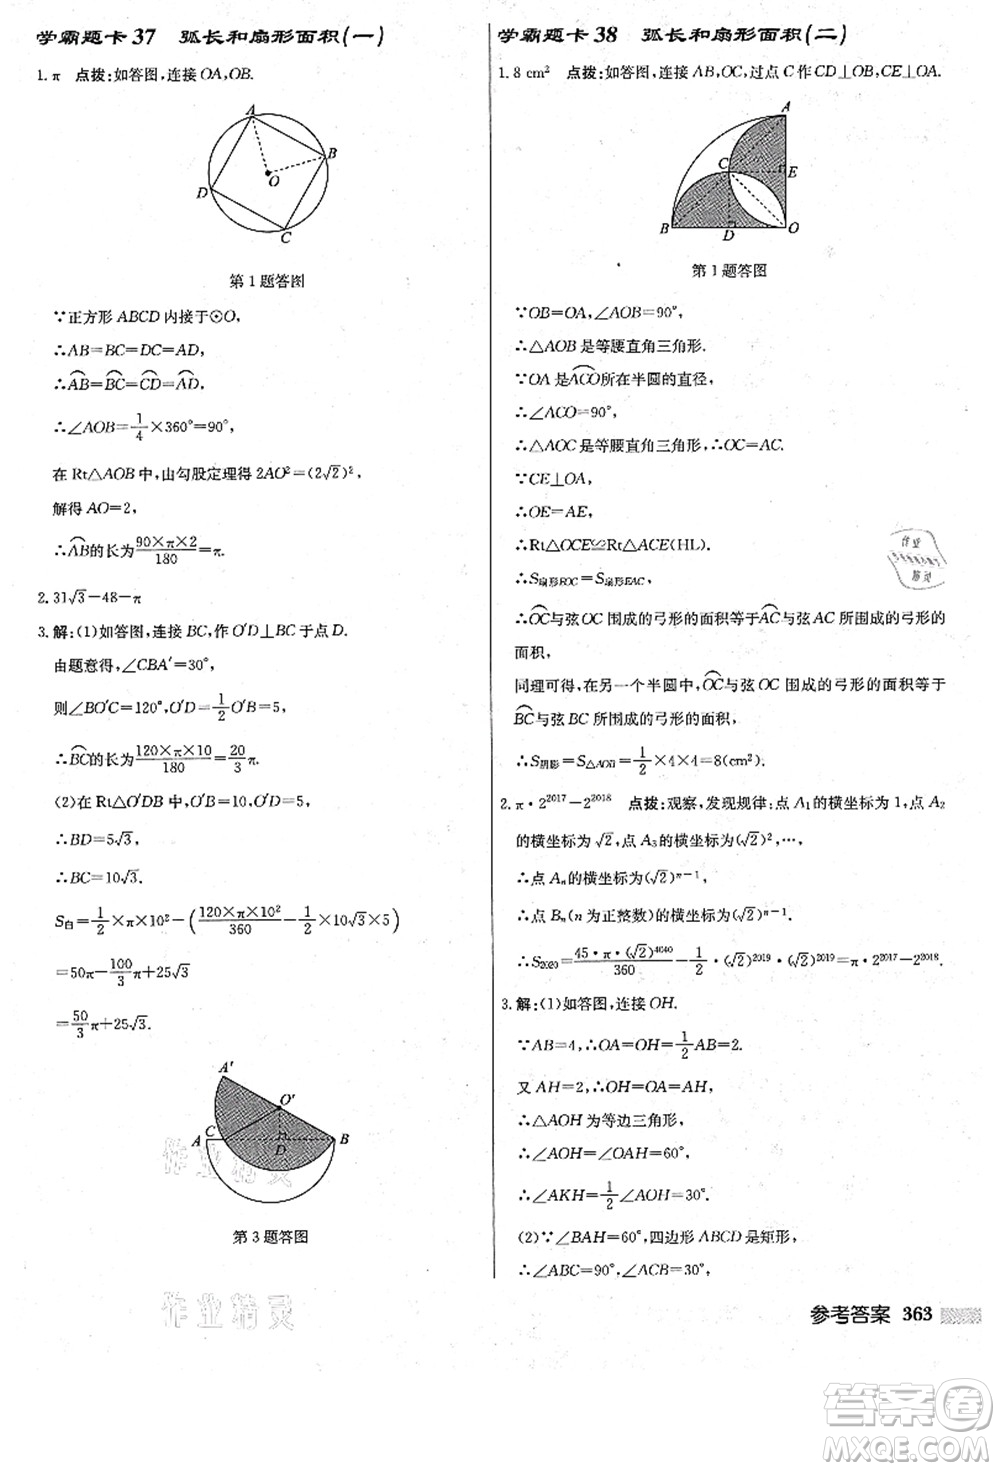 学霸题卡 37 弧长和扇形面积(一)
1. π 点拨:如答图,连接 OA,OB.
A
B
O
D
C
第 1 题答图
∵正方形 ABCD 内接于⊙O,
∴AB=BC=DC=AD,
∴⌒AB=⌒BC=⌒CD=⌒AD,
∴∠AOB=1/4×360°=90°,
在 Rt△AOB 中,由勾股定理得 2AO²=(2√2)²,
解得 AO=2,
∴⌒AB的长为90×π×2/180=π.
2. 31√3-48-π
3. 解:(1)如答图,连接 BC,作 O′D⊥BC 于点 D.
由题意得,∠CBA′=30°,
则∠BO′C=120°,O′D=1/2O′B=5,
∴⌒BC的长为120×π×10/180=20/3π.
(2)在 Rt△O′DB 中,O′B=10,O′D=5,
∴BD=5√3,
∴BC=10√3.
S白=1/2×π×10²-(120×π×10²/360-1/2×10√3×5)
=50π-100/3π+25√3
=50/3π+25√3.
A′
O′
A
C
D
B
第 3 题答图
学霸题卡 38 弧长和扇形面积(二)
1. 8 cm² 点拨:如答图,连接 AB,OC,过点 C 作 CD⊥OB,CE⊥OA.
A
C
E
B
D
O
第 1 题答图
∵OB=OA,∠AOB=90°,
∴△AOB 是等腰直角三角形.
∵OA 是⌒ACO所在半圆的直径,
∴∠ACO=90°,
∴△AOC 是等腰直角三角形,∴OC=AC.
∵CE⊥OA,
∴OE=AE,
∴Rt△OCE≌Rt△ACE(HL).
∴S扇形EOC=S扇形EAC,
∴⌒OC与弦 OC 围成的弓形的面积等于⌒AC与弦 AC 所围成的弓形的
面积,
同理可得,在另一个半圆中,⌒OC与弦 OC 围成的弓形的面积等于
⌒BC与弦 BC 所围成的弓形的面积,
∴S阴影=S△AOB=1/2×4×4=8(cm²).
2. π·2²⁰¹⁷-2²⁰¹⁸ 点拨:观察,发现规律:点 A₁的横坐标为 1,点 A₂
的横坐标为√2,点 A₃的横坐标为(√2)²,…,
∴点 Aₙ的横坐标为(√2)ⁿ⁻¹.
∴点 Bₙ(n 为正整数)的横坐标为(√2)ⁿ⁻¹.
∴S₂₀₂₀=45·π·(√2)⁴⁰⁴⁰/360-1/2·(√2)²⁰¹⁹·(√2)²⁰¹⁹=π·2²⁰¹⁷-2²⁰¹⁸.
3. 解:(1)如答图,连接 OH.
∵AB=4,∴OA=OH=1/2AB=2.
又 AH=2,∴OH=OA=AH,
∴△AOH 为等边三角形,
∴∠AOH=∠OAH=60°,
∴∠AKH=1/2∠AOH=30°.
(2)∵∠BAH=60°,四边形 ABCD 是矩形,
∴∠ABC=90°,∠BAC=30°,
作业
精灵
作业精灵
作业精灵
参考答案 363
答案圈
MXQE.COM